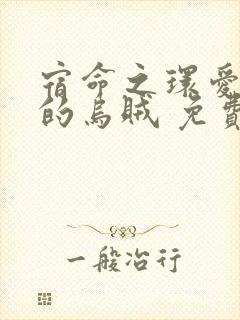 宿命之環愛
的烏賊 免費
一般冶行